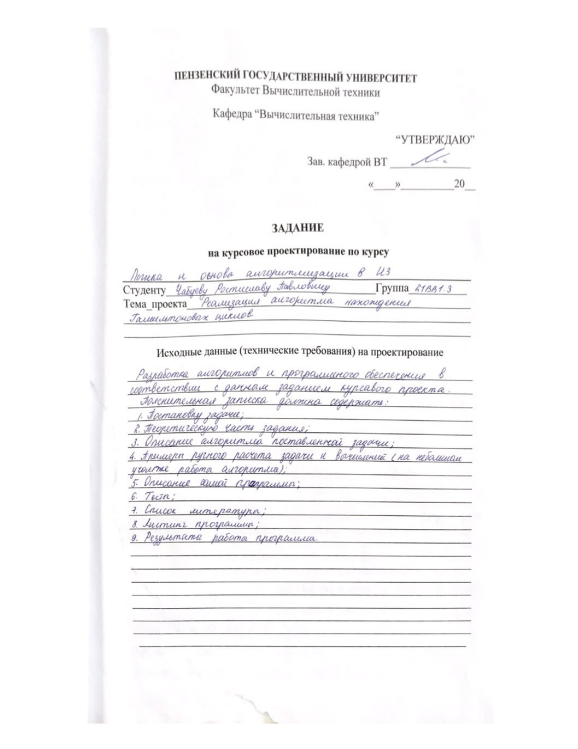 ПЕНЗЕНСКИЙ ГОСУДАРСТВЕННЫЙ УНИВЕРСИТЕТ
Факультет Вычислительной техники
Кафедра “Вычислительная техника”
“УТВЕРЖДАЮ”
Зав. кафедрой ВТ
«____»__________20__
ЗАДАНИЕ
на курсовое проектирование по курсу
Логика и основы алгоритмизации в ИЗ
Студенту Чабуеву Ростиславу Павловичу Группа 21ВВ1.3
Тема проекта Реализация алгоритма нахождения
Гамильтоновых циклов
Исходные данные (технические требования) на проектирование
Разработка алгоритмов и программного обеспечения в
соответствии с данным заданием курсового проекта.
Пояснительная записка должна содержать:
1. Постановку задачи;
2. Теоретическую часть задания;
3. Описание алгоритма поставленной задачи;
4. Примеры ручного расчёта задачи и вычислений (на небольшом
участке работы алгоритма);
5. Описание самой программы;
6. Тесты;
7. Список литературы;
8. Листинг программы;
9. Результаты работы программы.